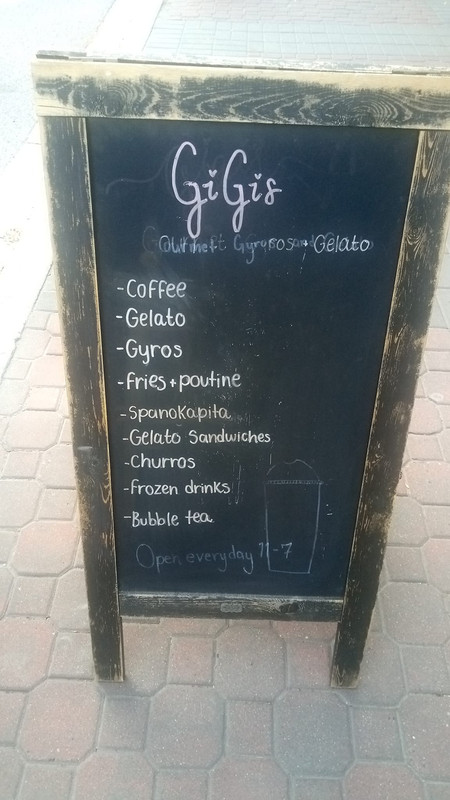 GiGis
Gourmet Gyros + Gelato
-Coffee
-Gelato
-Gyros
-Fries + poutine
-Spanokapita
-Gelato Sandwiches
-Churros
-frozen drinks
-Bubble tea
Open everyday 11-7